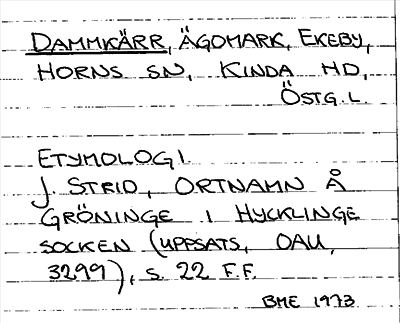 DAMMKÄRR, ÄGOMARK, EKEBY,
HORNS SN, KINDA HD,
ÖSTG.L.
ETYMOLOGI.
J. STRID, ORTNAMN Å
GRÖNINGE I HYCKLINGE
SOCKEN (UPPSATS, OAU,
3299), S. 22 F.F.
BME 1973